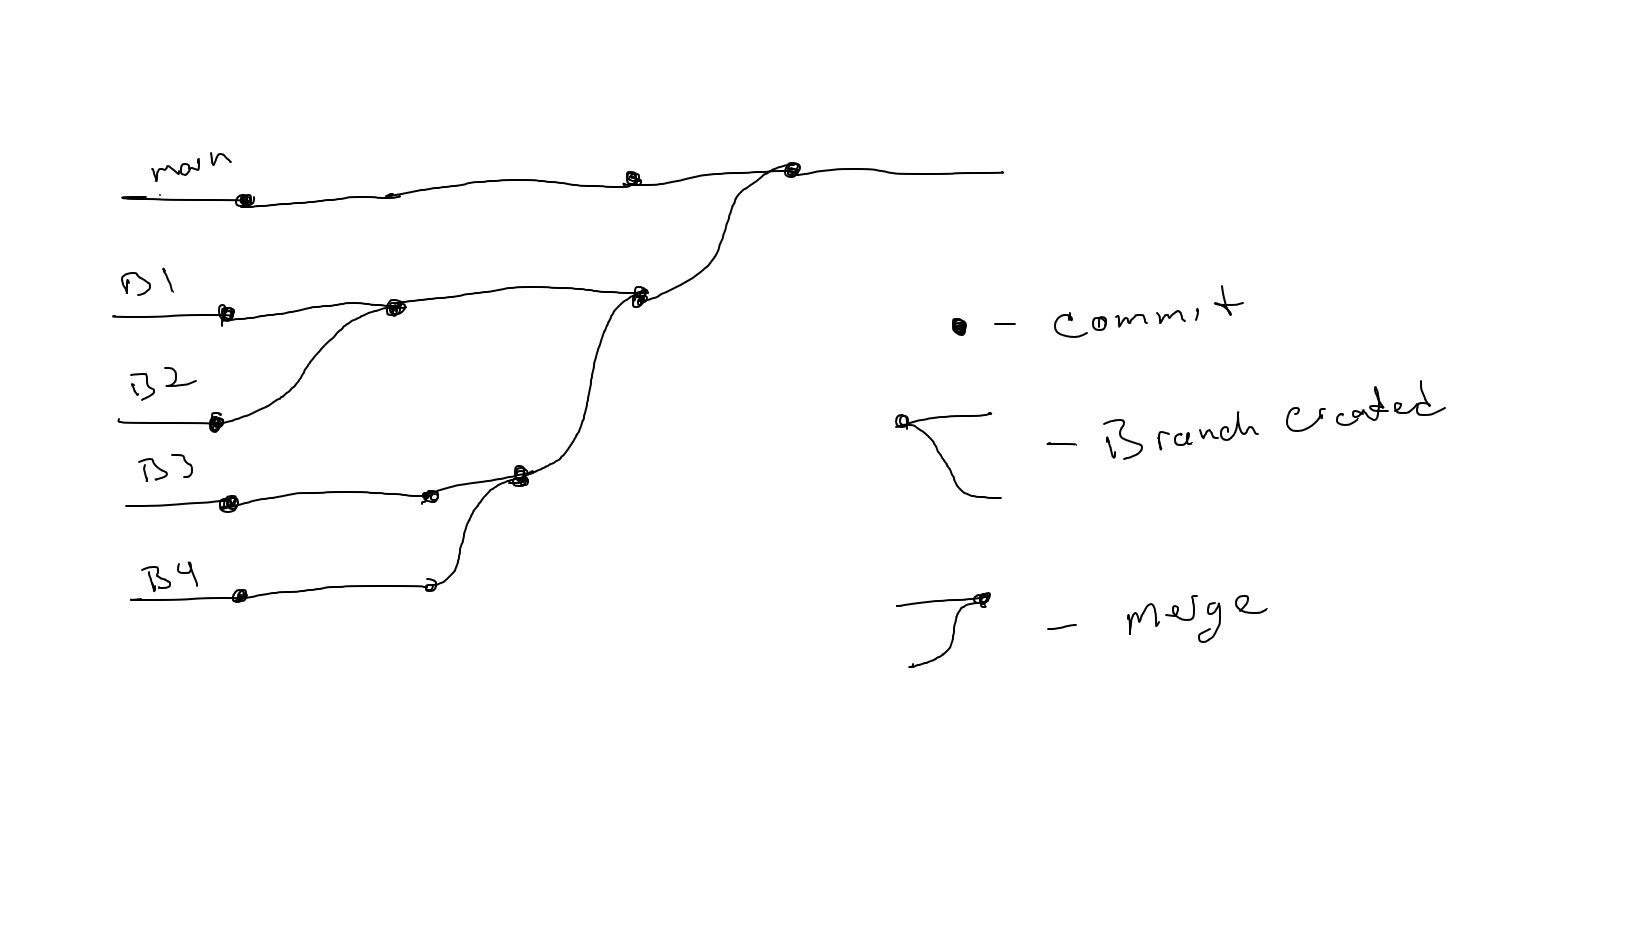 main
B1
B2
B3
B4
- Commit
- Branch created
- merge